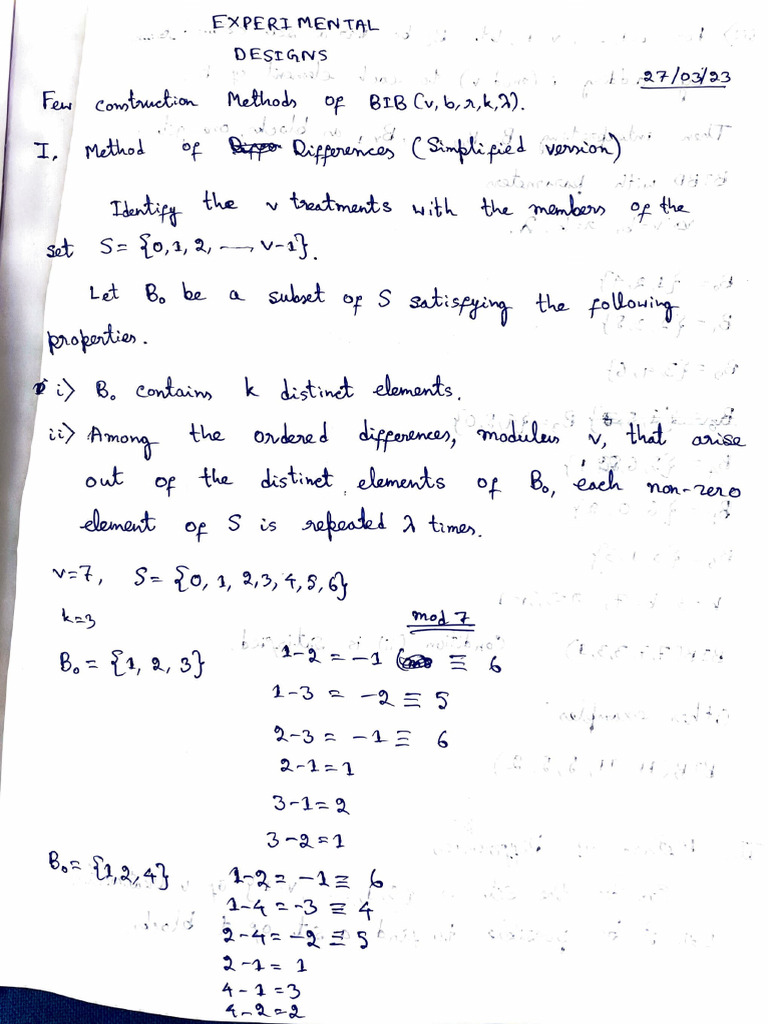 EXPERIMENTAL
DESIGNS
27/03/23
Few construction Methods of BIB (v, b, r, k, λ).
I. Method of Differences (Simplified version)
Identify the v treatments with the members of the
set S = {0, 1, 2, — v-1}.
Let B₀ be a subset of S satisfying the following
properties.
i> B₀ contains k distinct elements.
ii> Among the ordered differences, modulus v, that arise
out of the distinct elements of B₀, each non-zero
element of S is repeated λ times.
v=7, S = {0, 1, 2, 3, 4, 5, 6}
k=3
mod 7
B₀ = {1, 2, 3} 1-2 = -1 ≡ 6
1-3 = -2 ≡ 5
2-3 = -1 ≡ 6
2-1 = 1
3-1 = 2
3-2 = 1
B₀ = {1, 2, 4} 1-2 = -1 ≡ 6
1-4 = -3 ≡ 4
2-4 = -2 ≡ 5
2-1 = 1
4-1 = 3
4-2 = 2